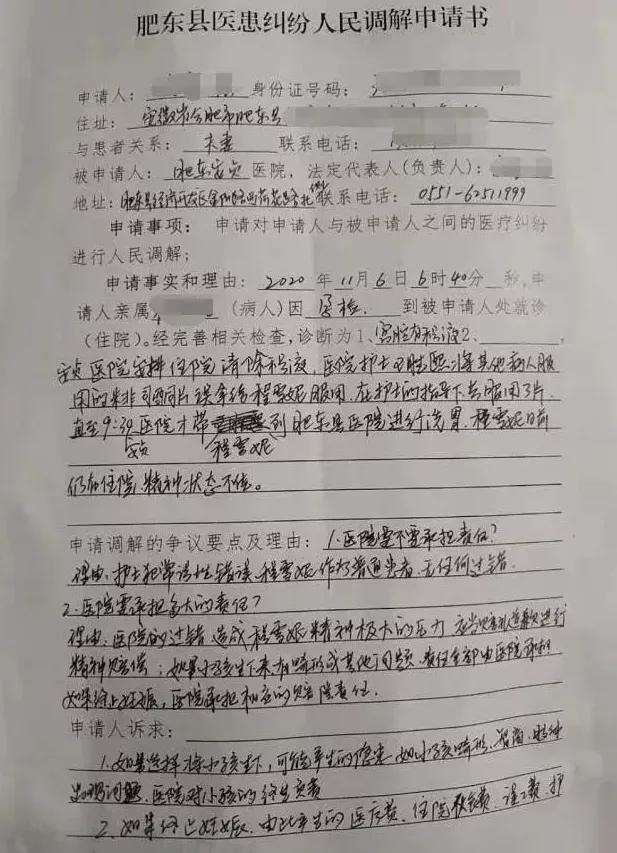 肥东县医患纠纷人民调解申请书
申请人： 身份证号码：
住址：安徽省合肥市肥东县
与患者关系：夫妻 联系电话：
被申请人：肥东安贞医院，法定代表人（负责人）：
地址：肥东县经济开发区 联系电话：0551-62511999
申请事项：申请对申请人与被申请人之间的医疗纠纷
进行人民调解；
申请事实和理由：2020年11月6日6时40分 秒，申
请人亲属 （病人）因孕检 到被申请人处就诊
（住院）。经完善相关检查，诊断为1、宫腔有积液2、
安贞医院安排住院清除积液，医院护士 将其他病人服
用的米非司酮片误拿给程雪妮服用，在护士的指导下共服用3片，
直至9:30医院才带 到肥东县医院进行洗胃，程雪妮目前
安贞 程雪妮
仍在住院，精神状态不佳。
申请调解的争议要点及理由：1.医院要不要承担责任？
理由：护士犯常识性错误，程雪妮作为普通患者，无任何过错。
2.医院需承担多大的责任？
理由：医院的过错，造成程雪妮精神极大的压力，应当赔礼道歉，进行
精神赔偿；如果小孩生下来有畸形或其他问题，责任全部由医院承担；
如果终止妊娠，医院承担相应的赔偿责任。
申请人诉求：
1.如果选择将小孩生下，可能产生的隐患，如小孩畸形、智商、精神
出现问题，医院对小孩的终生负责
2、如果终止妊娠，由此产生的医疗费、住院 费、误工费、护